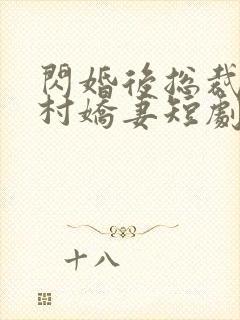 閃婚後總裁
村嬌妻短劇
十八